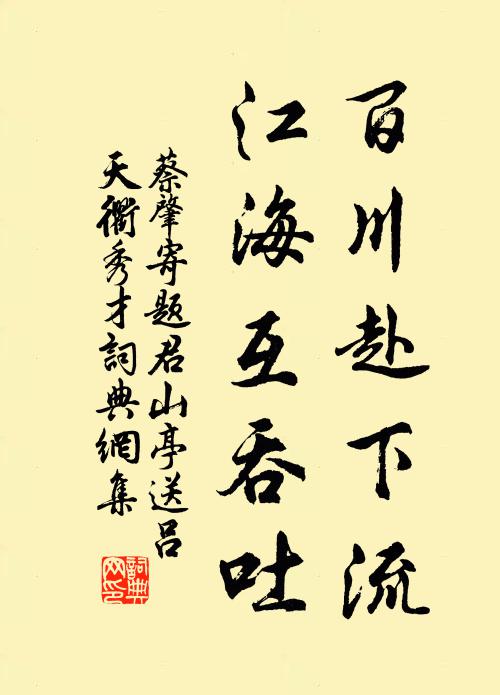 百川赴下流
江海互吞吐
蔡肇寄题君山亭送吕
天衢秀才詞典網集
詞典
网印